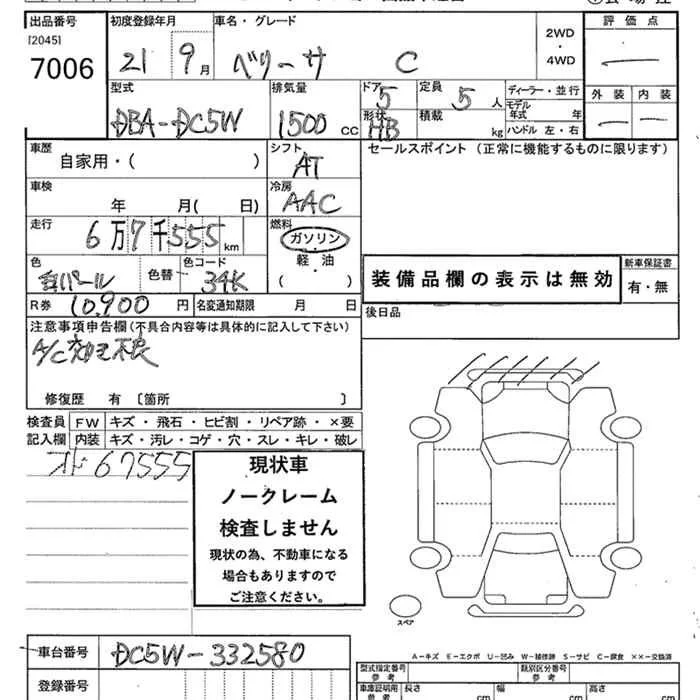 出品番号
[2045]
7006
初度登録年月
21 9月
車名・グレード
ベリーサ C
2WD
・
4WD
評価点
型式
DBA-DC5W
排気量
1500 CC
ドア 5
形状 HB
定員 5 人
積載 kg
ディーラー・並行
モデル年式 年
ハンドル 左・右
外装 内装
車歴
自家用・( )
シフト
AT
セールスポイント (正常に機能するものに限ります)
車検
年 月( 日)
冷房
AAC
走行
6万7千555km
燃料
ガソリン
軽・油
( )
色
白パール
色替
色コード
34K
装備品欄の表示は無効
新車保証書
有・無
R券 10,900 円
名変通知期限 月 日
後日品
注意事項申告欄(不具合内容等は具体的に記入して下さい)
A/C効き不良
修復歴 有 [箇所 ]
検査員記入欄
FW キズ・飛石・ヒビ割・リペア跡・×要
内装 キズ・汚レ・コゲ・穴・スレ・キレ・破レ
オド67555
現状車
ノークレーム
検査しません
現状の為、不動車になる
場合もありますので
ご注意ください。
スペア
車台番号
DC5W-332580
登録番号
A-キズ E-エクボ U-凹み W-補修跡 S-サビ C-腐食 ××-交換済
型式指定番号
参考
類別区分番号
参考
車庫証明用
参考
長さ cm
幅 cm
高さ cm